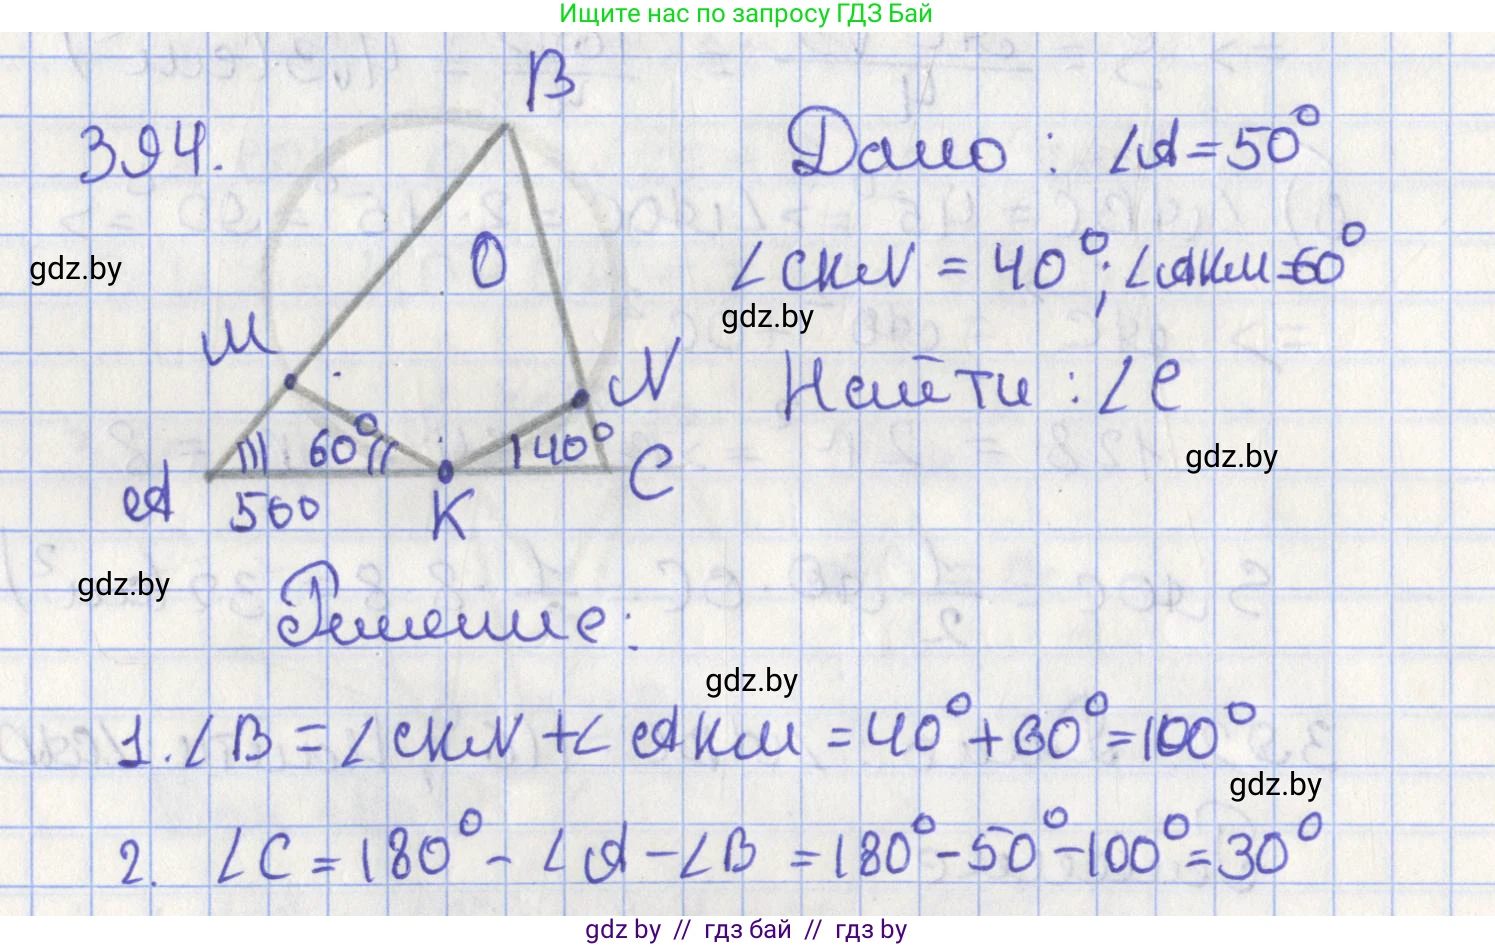 Ищите нас по запросу ГДЗ Бай
394.
B
O
M
N
60°
140°
A
50°
K
C
Дано : ∠A = 50°
∠CKN = 40°; ∠AKM = 60°
Найти : ∠C
gdz.by
gdz.by
gdz.by
gdz.by
Решение:
gdz.by
1. ∠B = ∠CKN + ∠AKM = 40° + 60° = 100°
gdz.by
2. ∠C = 180° - ∠A - ∠B = 180° - 50° - 100° = 30°
gdz.by // гдз бай // гдз by